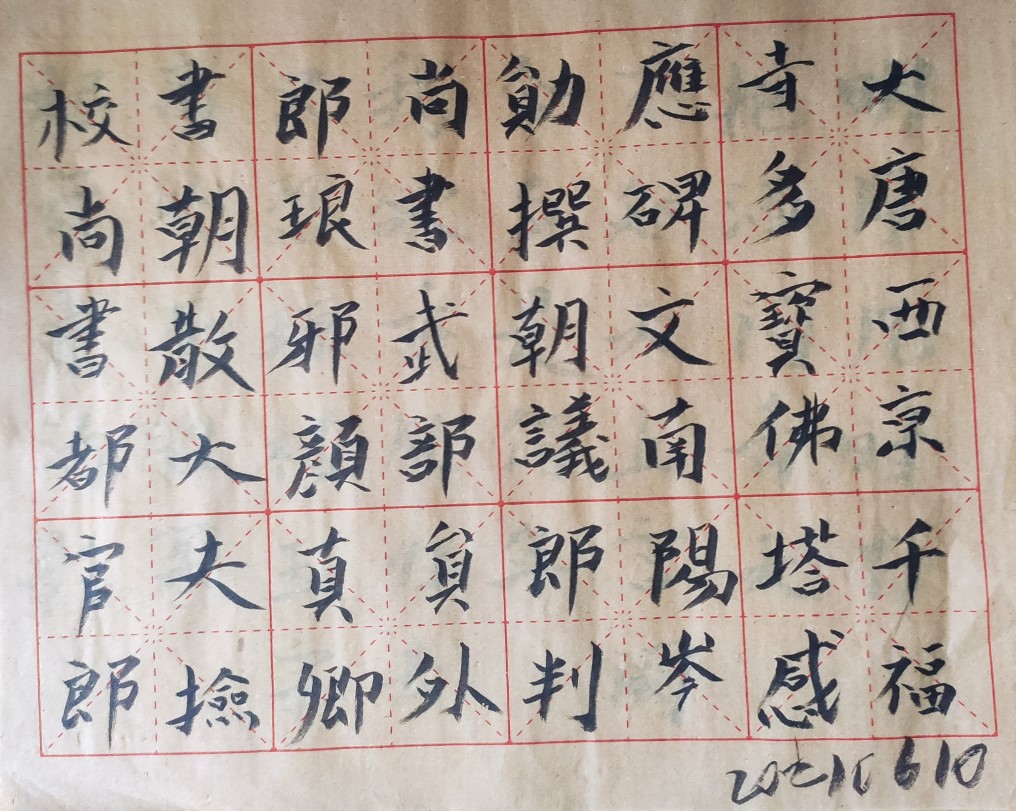 大唐西京千福
寺多寶佛塔感
應碑文南陽岑
勛撰朝議郎判
尚書武部貟外
郎琅邪顏真卿
書朝散大夫撿
校尚書都官郎